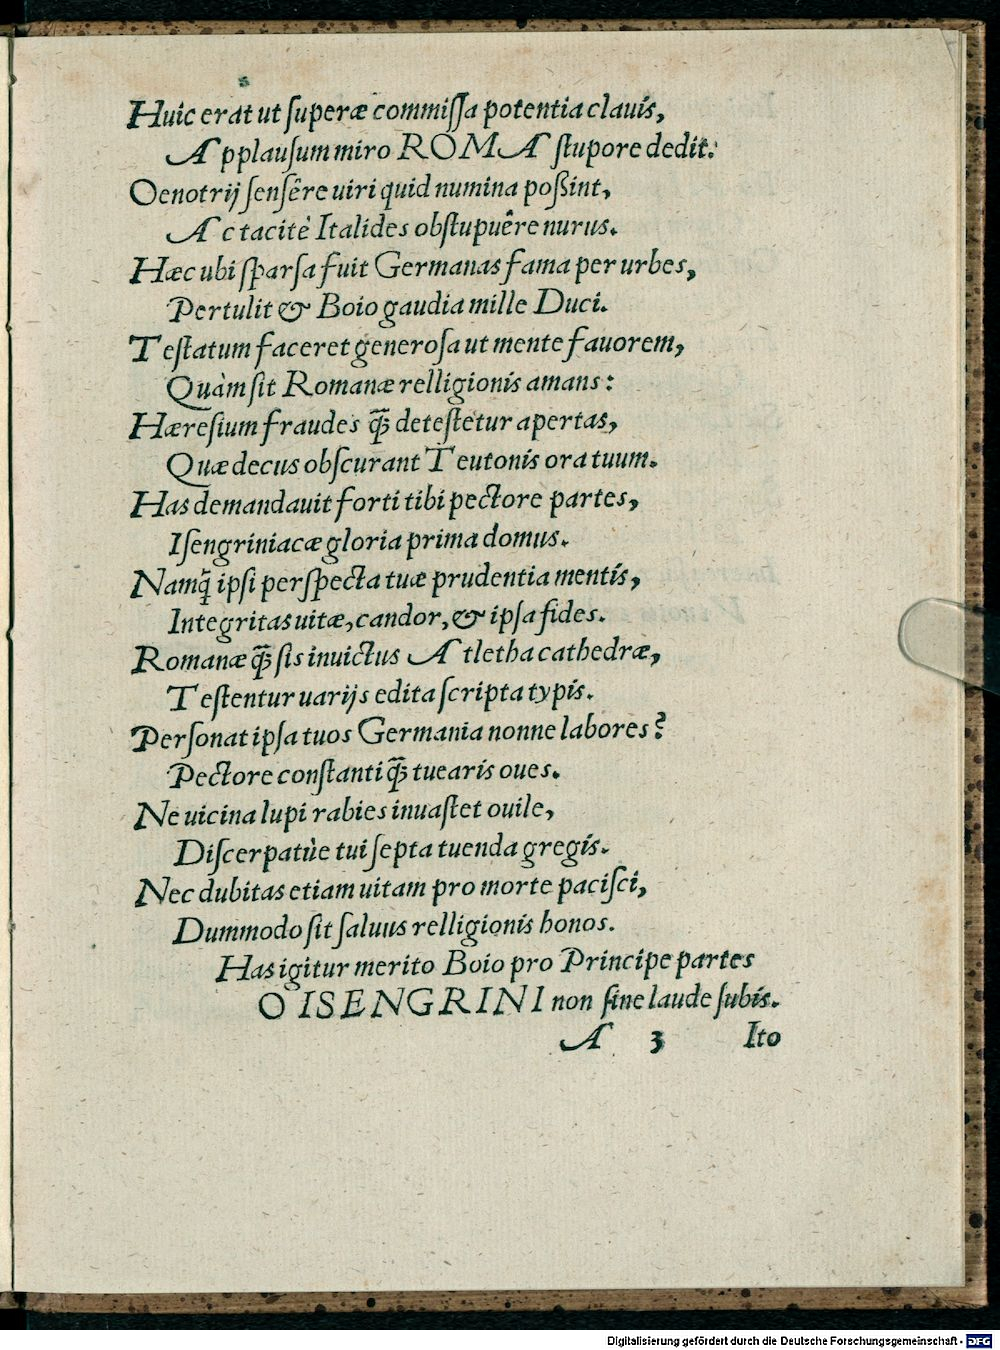 Huic erat ut ſuperæ commiſſa potentia clauis,
Applauſum miro ROMA ſtupore dedit.
Oenotrij ſenſêre uiri quid numina poßint,
Ac tacitè Italides obſtupuêre nurus.
Hæc ubi ſparſa fuit Germanas fama per urbes,
Pertulit & Boio gaudia mille Duci.
Teſtatum faceret generoſa ut mente fauorem,
Quàm ſit Romanæ relligionis amans:
Hæreſium fraudes q̃ꝫ deteſtetur apertas,
Quæ decus obſcurant Teutonis ora tuum.
Has demandauit forti tibi pectore partes,
Iſengriniacæ gloria prima domus.
Namq̃ ipſi perſpecta tuæ prudentia mentis,
Integritas uitæ, candor, & ipſa fides.
Romanæ q̃ꝫ ſis inuictus Atletha cathedræ,
Teſtentur uarijs edita ſcripta typis.
Perſonat ipſa tuos Germania nonne labores?
Pectore conſtanti q̃ꝫ tuearis oues.
Ne uicina lupi rabies inuaſtet ouile,
Diſcerpatùe tui ſepta tuenda gregis.
Nec dubitas etiam uitam pro morte paciſci,
Dummodo ſit ſaluus relligionis honos.
Has igitur merito Boio pro Principe partes
O ISENGRINI non ſine laude ſubis.
A 3 Ito
Digitalisierung gefördert durch die Deutsche Forschungsgemeinschaft - DFG